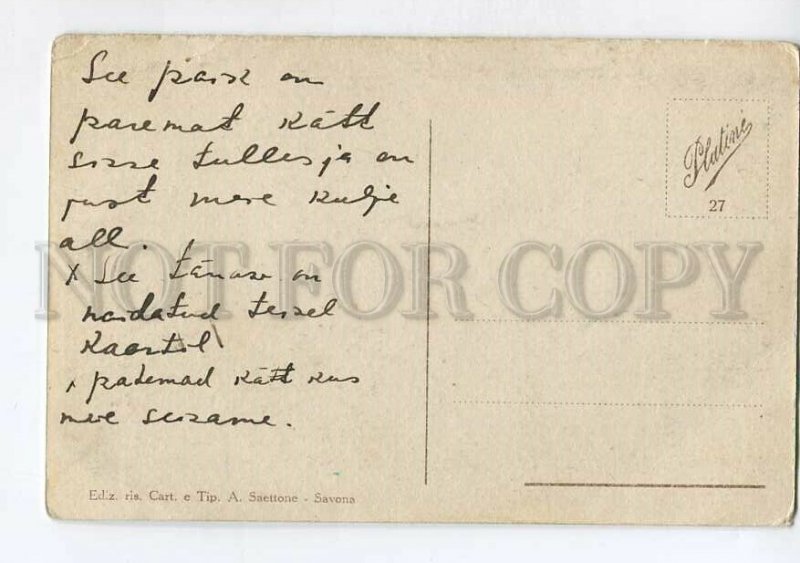 See park on
paremat kätt
sisse tulles ja on
just mere kulje
all.
X See tänav on
naidatud teisel
Kaartil
x pahemad kätt kus
me seisame.
Platini
27
Ediz. ris. Cart. e Tip. A. Saettone - Savona
NOT FOR COPY